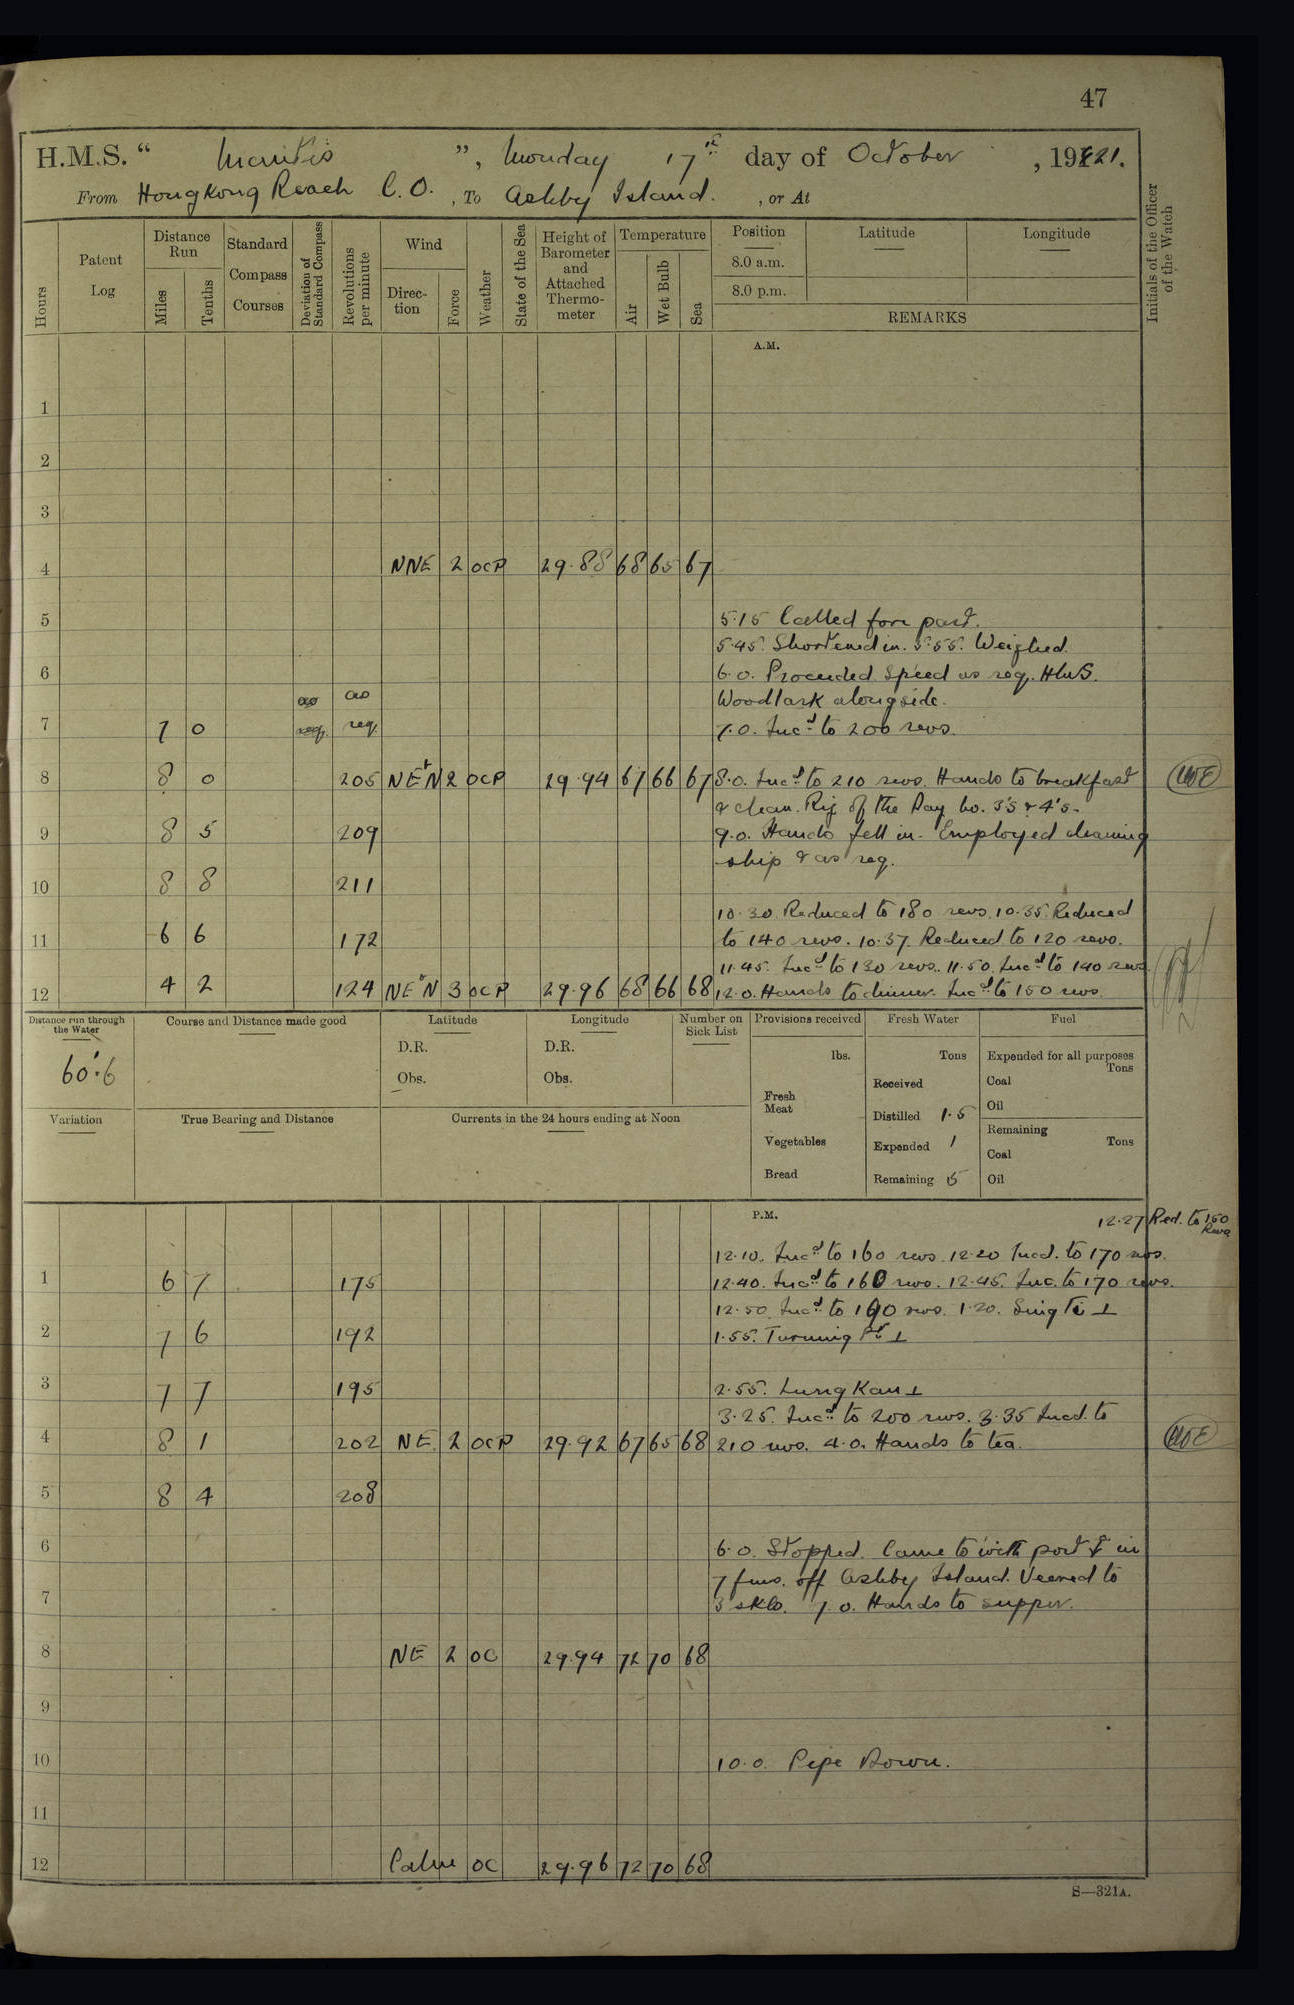 47
H.M.S. “ Mantis ”, Monday 17th day of October, 1921.
From Hongkong Reach C.O., To Ashby Island., or At
Hours
Patent Log
Distance Run
Miles
Tenths
Standard Compass Courses
Deviation of Standard Compass
Revolutions per minute
Wind
Direction
Force
Weather
State of the Sea
Height of Barometer and Attached Thermometer
Temperature
Air
Wet Bulb
Sea
Position
8.0 a.m.
8.0 p.m.
Latitude
Longitude
REMARKS
Initials of the Officer of the Watch
A.M.
1
2
3
4 NNE 2 OCP 29.88 68 65 67
5 5.15 Called fore part.
5.45. Shortened in. 5.55. Weighed.
6 6.0. Proceeded Speed as req. H.M.S.
as as Woodlark alongside.
7 7 0 req. req. 7.0. Incd to 200 revs.
8 8 0 205 NE'N 2 OCP 29.94 67 66 67 8.0. Incd to 210 revs. Hands to breakfast
& clean. Rig of the Day No. 3's & 4's.
9 8 5 209 9.0. Hands fell in. Employed cleaning
ship & as req.
10 8 8 211
10.30. Reduced to 180 revs. 10.35. Reduced
11 6 6 172 to 140 revs. 10.37. Reduced to 120 revs.
11.45. Incd to 130 revs. 11.50. Incd to 140 revs.
12 4 2 124 NE'N 3 OCP 29.96 68 66 68 12.0. Hands to dinner. Incd to 150 revs.
Distance run through the Water
60'.6
Course and Distance made good
Latitude
D.R.
Obs.
Longitude
D.R.
Obs.
Number on Sick List
Provisions received
lbs.
Fresh Meat
Vegetables
Bread
Fresh Water
Tons
Received
Distilled 1.5
Expended 1
Remaining 5
Fuel
Expended for all purposes
Tons
Coal
Oil
Remaining
Tons
Coal
Oil
Variation
True Bearing and Distance
Currents in the 24 hours ending at Noon
P.M.
12.27 Red. to 150 Revs
12.10. Incd to 160 revs. 12.20 Incd. to 170 revs.
1 6 7 175 12.40. Incd to 160 revs. 12.45. Inc. to 170 revs.
12.50. Incd to 190 revs. 1.20. Sing Ti ⊥
2 7 6 192 1.55. Turning Pt ⊥
3 7 7 195 2.55. Lung Kan ⊥
3.25. Incd to 200 revs. 3.35 Incd. to
4 8 1 202 NE 2 OCP 29.92 67 65 68 210 revs. 4.0. Hands to tea.
5 8 4 208
6 6.0. Stopped. Came to with port ⚓ in
7 fms. off Ashby Island. Veered to
7 3 skls. 7.0. Hands to supper.
8 NE 2 OC 29.94 72 70 68
9
10 10.0. Pipe Down.
11
12 Calm OC 29.96 72 70 68
S—321A.